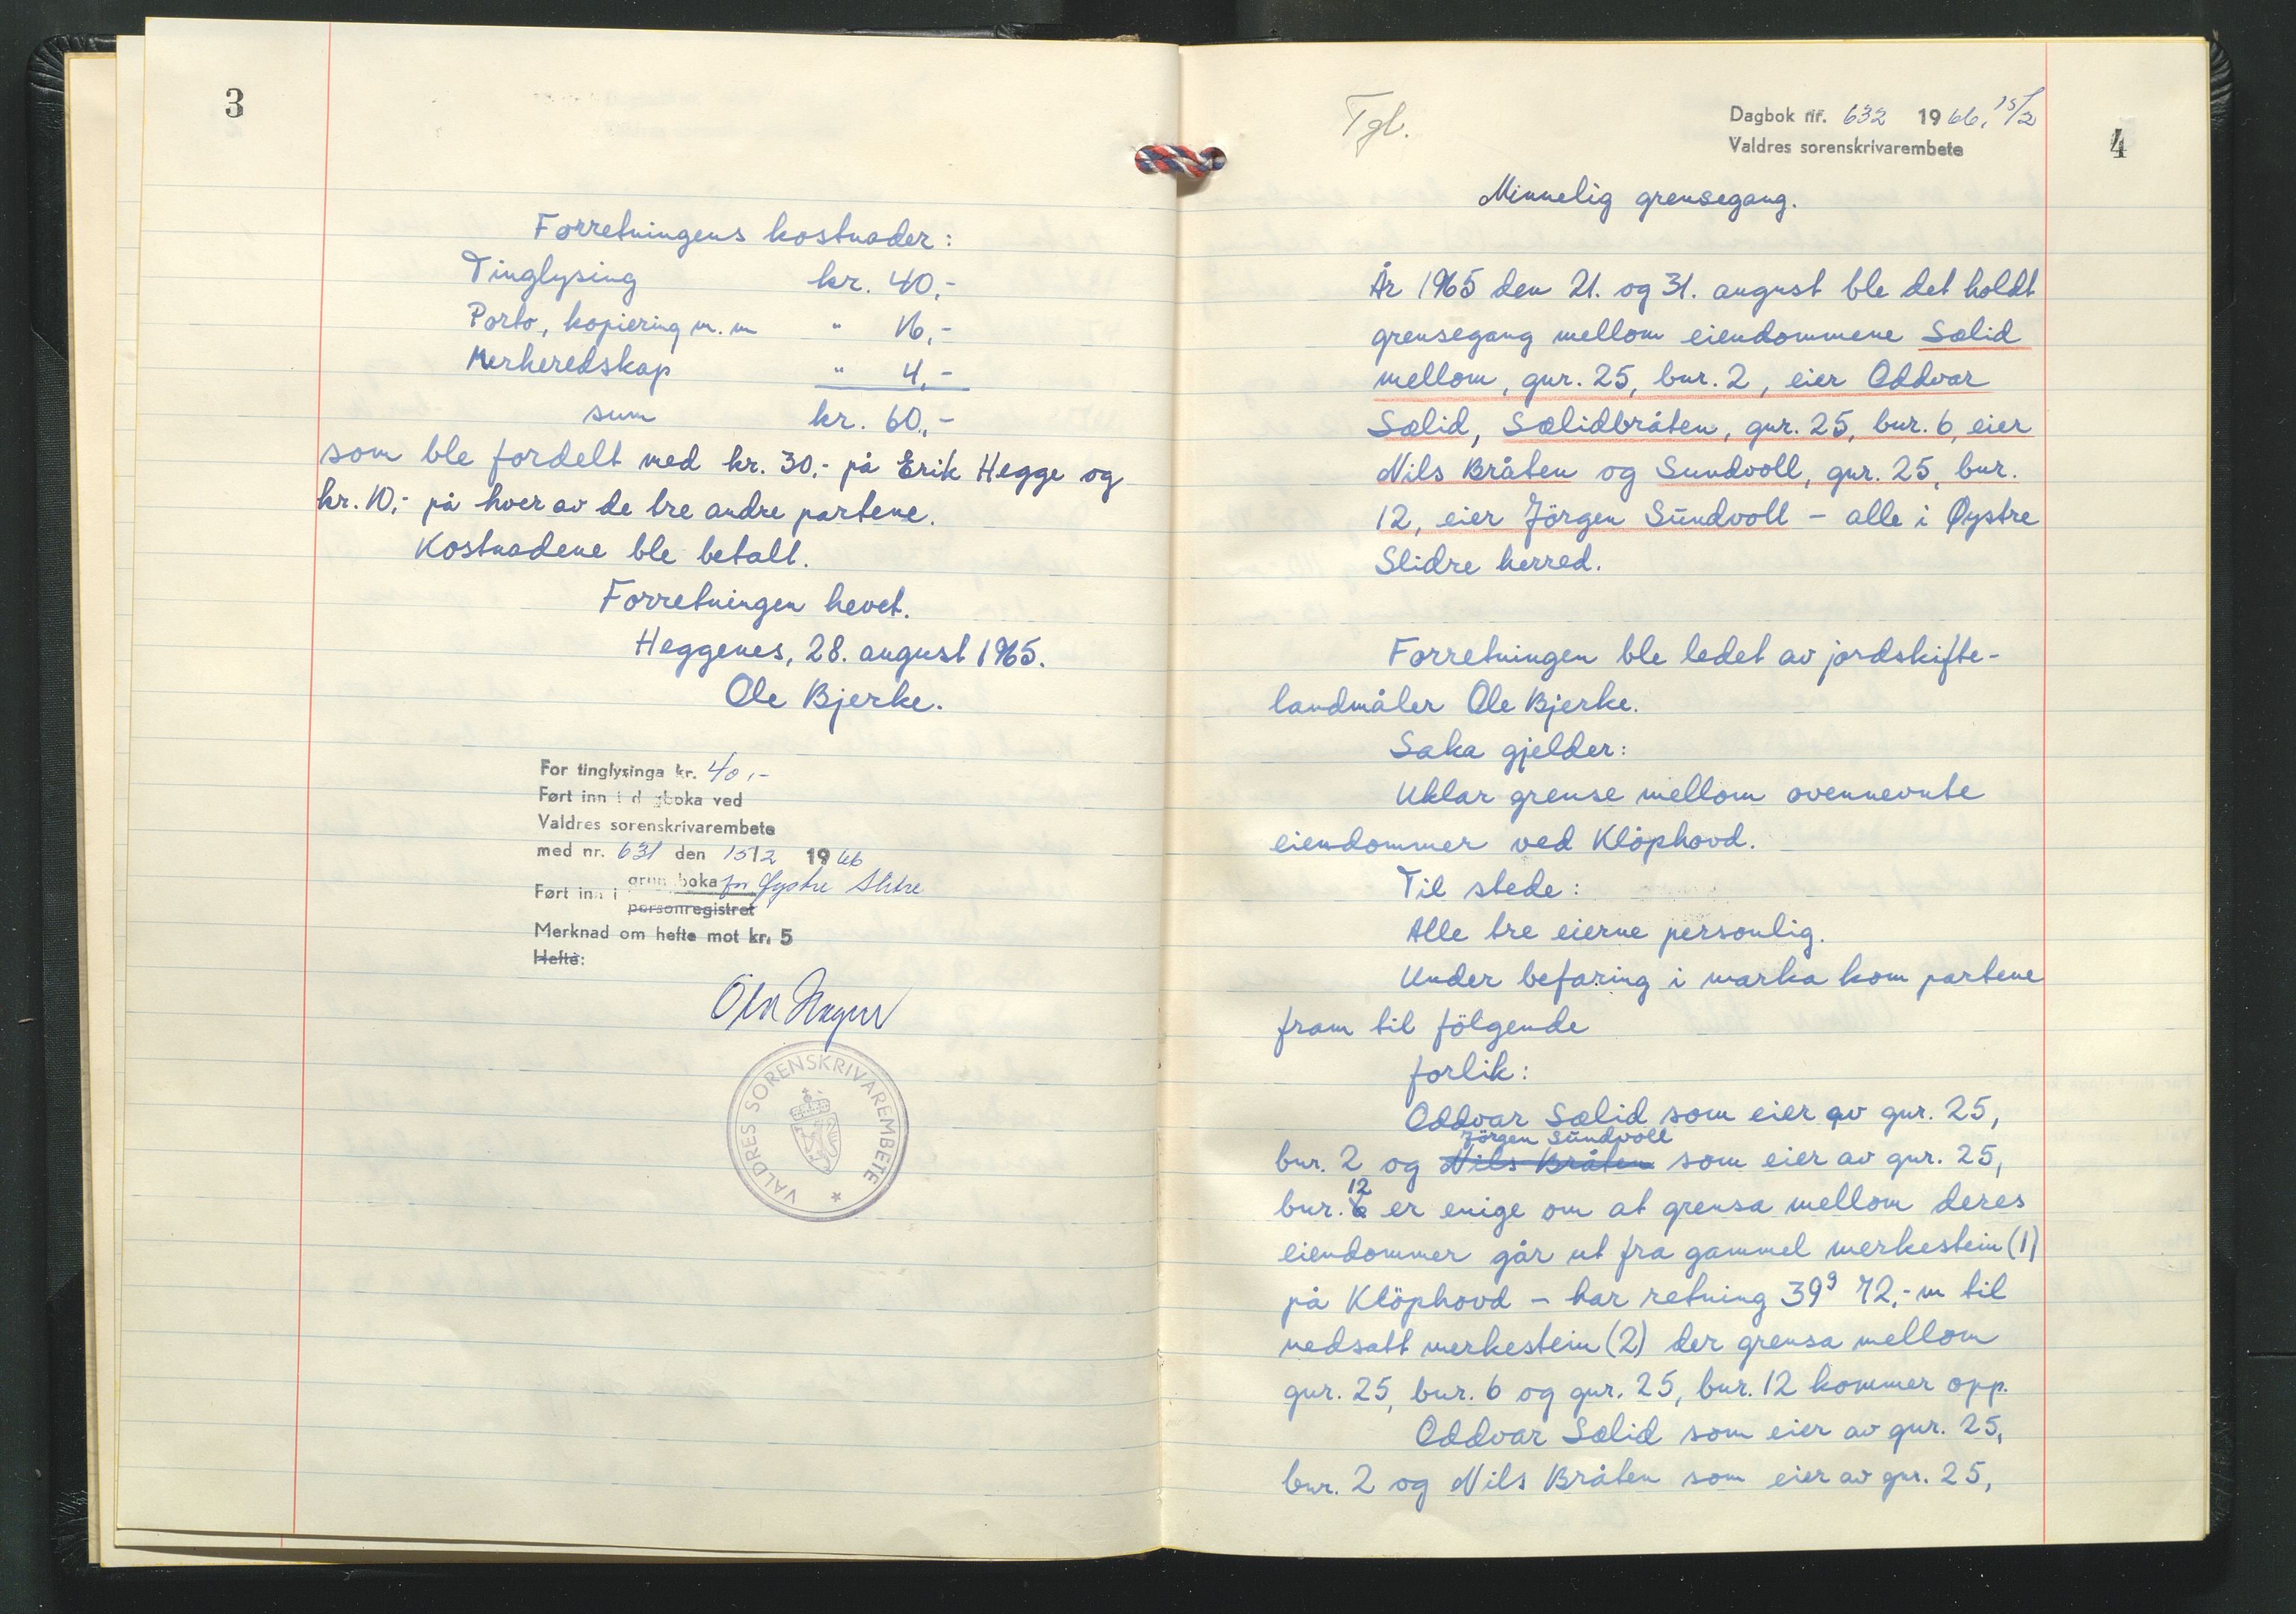 3
Forretningens kostnader:
Tinglysing kr. 40,-
Porto, kopiering m.m " 16,-
Merkeredskap " 4,-
sum kr. 60,-
som ble fordelt med kr. 30,- på Erik Hegge og
kr. 10,- på hver av de tre andre partene.
Kostnadene ble betalt.
Forretningen hevet.
Heggenes, 28. august 1965.
Ole Bjerke.
For tinglysinga kr. 40,-
Ført inn i dagboka ved
Valdres sorenskrivarembete
med nr. 631 den 15/2 1966
Ført inn i grunnboka for Øystre Slidre
personregistret
Merknad om hefte mot kr. 5
Hefte:
VALDRES SORENSKRIVAREMBETE *
Tgl.
Dagbok nr. 632 1966, 15/2
Valdres sorenskrivarembete
4
Minnelig grensegang.
År 1965 den 21. og 31. august ble det holdt
grensegang mellom eiendommene Sælid
mellom, gnr. 25, bnr. 2, eier Oddvar
Sælid, Sælidbråten, gnr. 25, bnr. 6, eier
Nils Bråten og Sundvoll, gnr. 25, bnr.
12, eier Jörgen Sundvoll - alle i Øystre
Slidre herred.
Forretningen ble ledet av jordskifte-
landmåler Ole Bjerke.
Saka gjelder:
Uklar grense mellom ovennevnte
eiendommer ved Klöphovd.
Til stede:
Alle tre eierne personlig.
Under befaring i marka kom partene
fram til fölgende
forlik:
Oddvar Sælid som eier av gnr. 25,
Jörgen Sundvoll
bnr. 2 og Nils Bråten som eier av gnr. 25,
12
bnr. 6 er enige om at grensa mellom deres
eiendommer går ut fra gammel merkestein (1)
på Klöphovd - har retning 39g 72,- m til
nedsatt merkestein (2) der grensa mellom
gnr. 25, bnr. 6 og gnr. 25, bnr. 12 kommer opp.
Oddvar Sælid som eier av gnr. 25,
bnr. 2 og Nils Bråten som eier av gnr. 25,